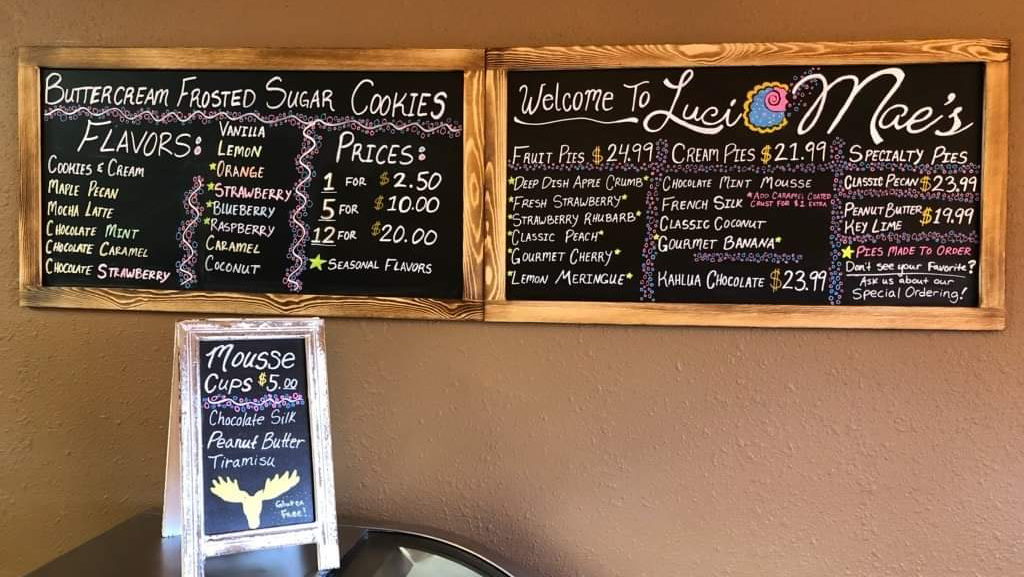 BUTTERCREAM FROSTED SUGAR COOKIES
FLAVORS:
COOKIES & CREAM
MAPLE PECAN
MOCHA LATTE
CHOCOLATE MINT
CHOCOLATE CARAMEL
CHOCOLATE STRAWBERRY
VANILLA
LEMON
*ORANGE
*STRAWBERRY
*BLUEBERRY
*RASPBERRY
CARAMEL
COCONUT
PRICES:
1 FOR $2.50
5 FOR $10.00
12 FOR $20.00
★SEASONAL FLAVORS
Welcome To Luci Mae's
FRUIT PIES $24.99
*DEEP DISH APPLE CRUMB*
*FRESH STRAWBERRY*
*STRAWBERRY RHUBARB*
*CLASSIC PEACH*
*GOURMET CHERRY*
*LEMON MERINGUE*
CREAM PIES $21.99
CHOCOLATE MINT MOUSSE
FRENCH SILK
*ADD CARAMEL COATED
CRUST FOR $1 EXTRA
CLASSIC COCONUT
*GOURMET BANANA*
KAHLUA CHOCOLATE $23.99
SPECIALTY PIES
CLASSIC PECAN $23.99
PEANUT BUTTER
KEY LIME $19.99
★PIES MADE TO ORDER
Don't see your Favorite?
Ask us about our
Special Ordering!
Mousse
Cups $5.00
Chocolate Silk
Peanut Butter
Tiramisu
Gluten
Free!